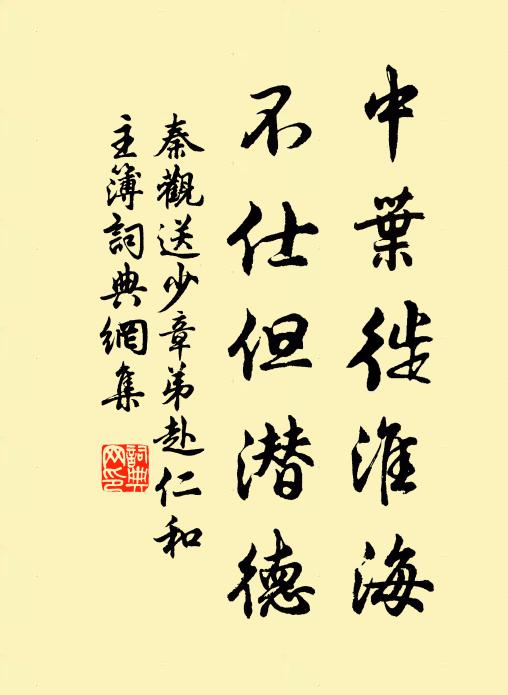 中葉徙淮海
不仕但潜德
秦觀送少章弟赴仁和
主簿詞典網集
詞典網印